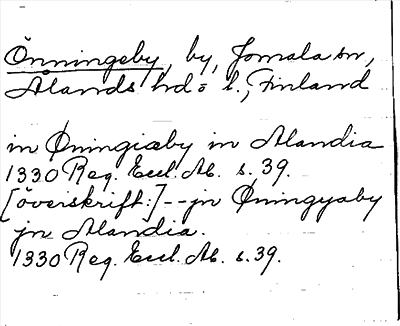 Önningeby, by, Jomala sn,
Ålands hd o l., Finland
in Øningiæby in Alandia
1330 Reg. Eccl. Ab. s. 39.
[överskrift:] -- jn Øningyaby
jn Alandia.
1330 Reg. Eccl. Ab. s. 39.